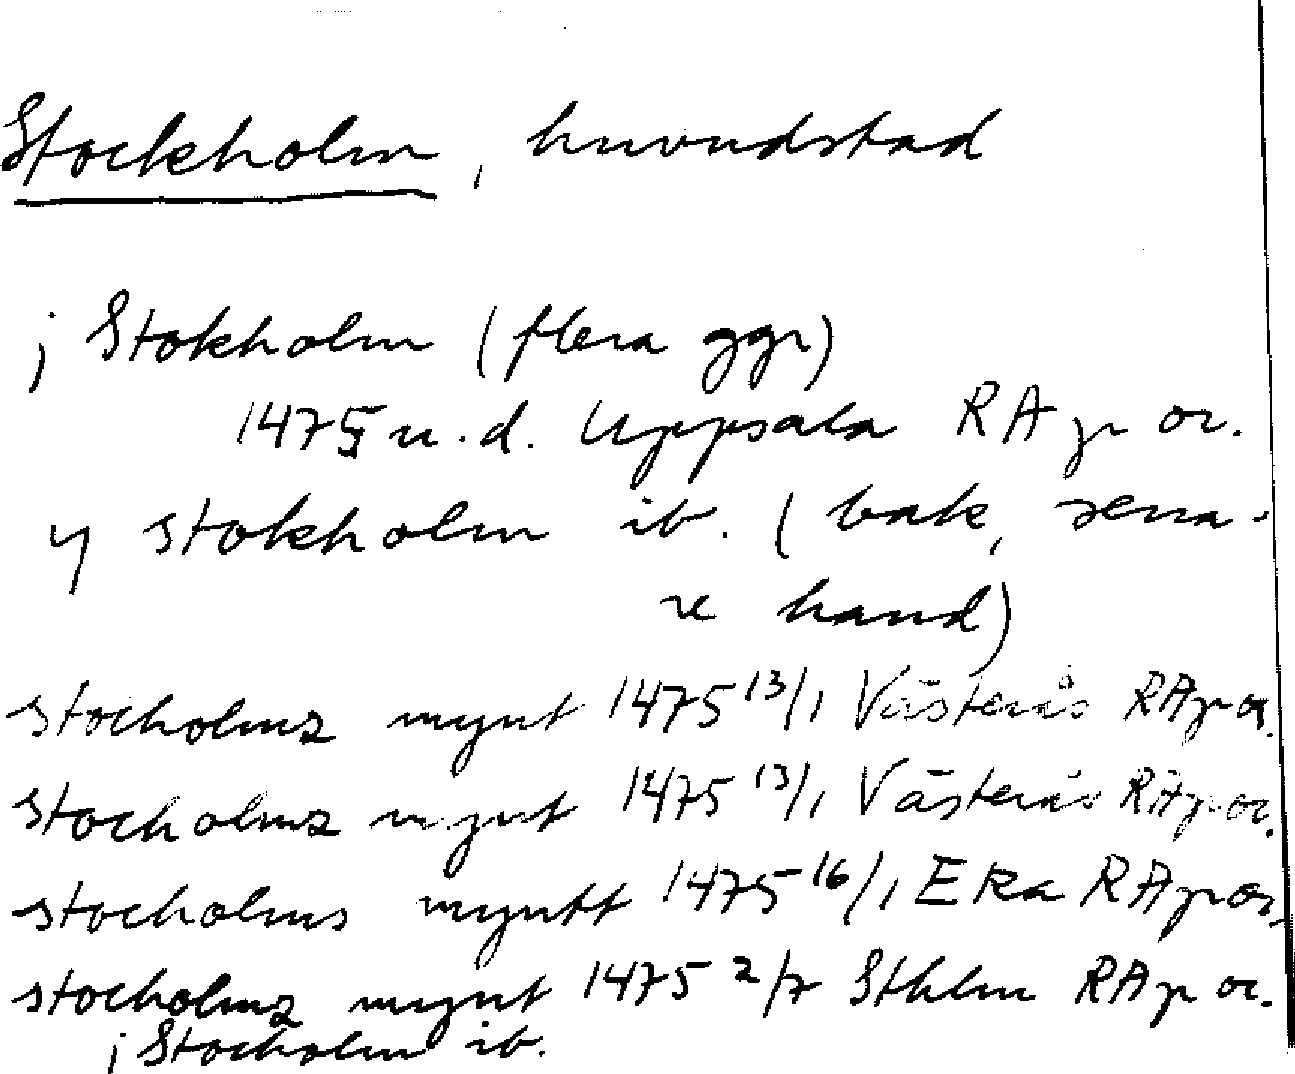 Stockholm, huvudstad
j Stokholm (flera ggr)
1475 u.d. Uppsala RAp or.
y stokholm ib. (bak, sena-
re hand)
stocholmz mynt 1475 13/1 Västerås RAp or.
stocholmz mynt 1475 13/1 Västerås RAp or.
stocholms myntt 1475 16/1 Eka RAp or.
stocholmz mynt 1475 2/7 Sthlm RAp or.
j Stocholm ib.